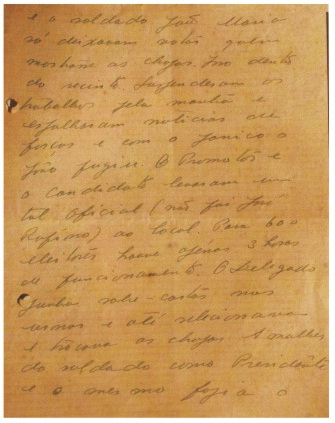 e o soldado João Maria
só deixavam votar quem
mostrasse as chapas. Isso dentro
do recinto. Suspenderam os
trabalhos pela manhã e
espalharam notícias de
forças e com o panico o
João fugiu. O Promotôr e
o candidato levaram um
tal Oficial (não foi José
Rufino) ao local. Para 600
eleitôres houve apenas 3 horas
de funcionamento. O Delegado
ganhou sobre-cartas nas
urnas e até selecionava
e trocava as chapas. A mulher
do soldado como Presidênte
e o mesmo fazia o